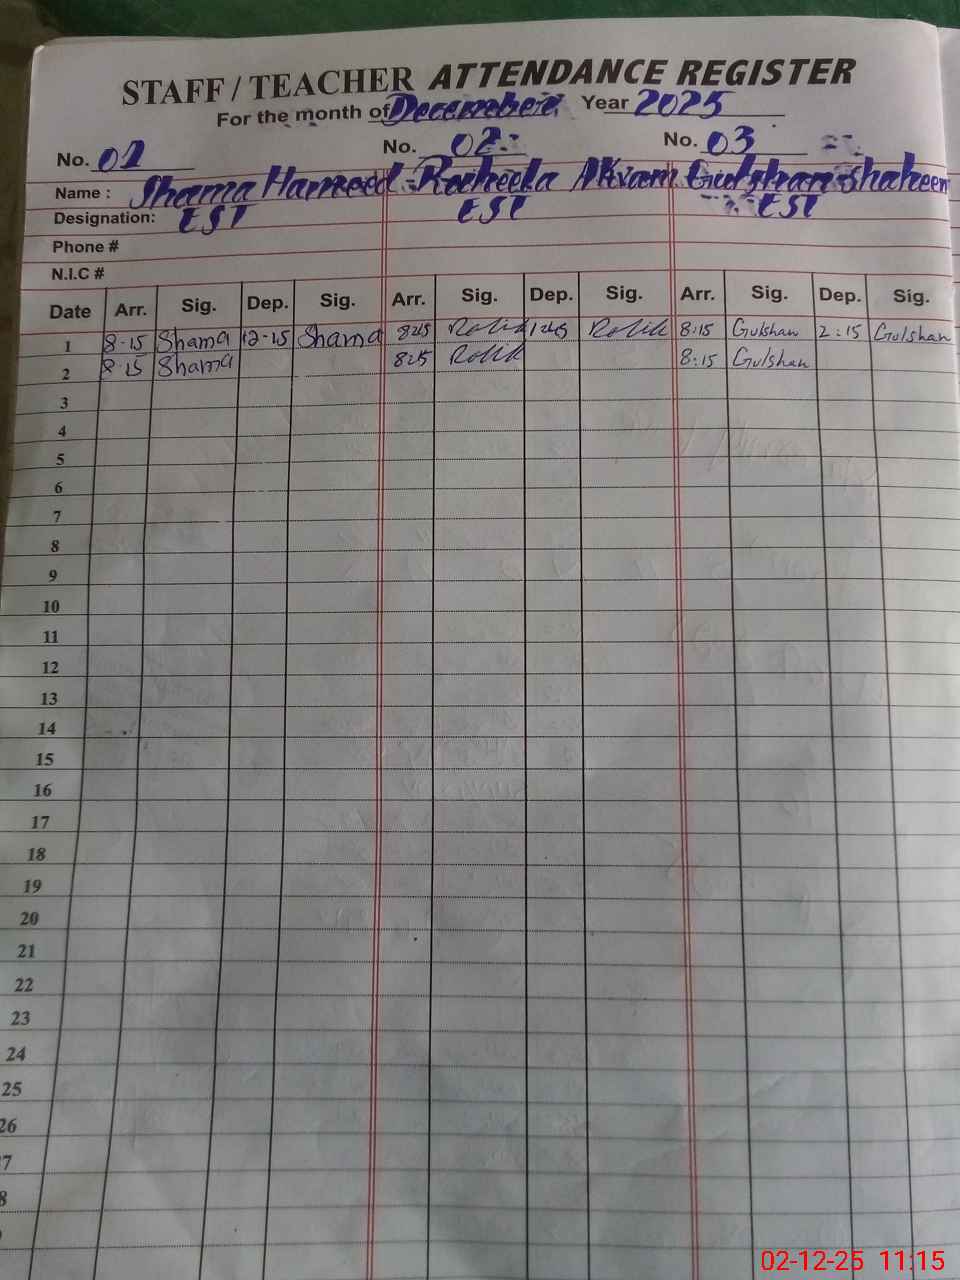 STAFF / TEACHER ATTENDANCE REGISTER
For the month of December Year 2025
No. 01 No. 02 No. 03
Name : Shama Hameed Raheela Akram Gulshan Shaheen
Designation: EST EST EST
Phone #
N.I.C #
Date Arr. Sig. Dep. Sig. Arr. Sig. Dep. Sig. Arr. Sig. Dep. Sig.
1 8-15 Shama 12-15 Shama 825 8:15 Gulshan 2:15 Gulshan
2 8-15 Shama 825 8:15 Gulshan
3
4
5
6
7
8
9
10
11
12
13
14
15
16
17
18
19
20
21
22
23
24
25
26
7
8
02-12-25 11:15